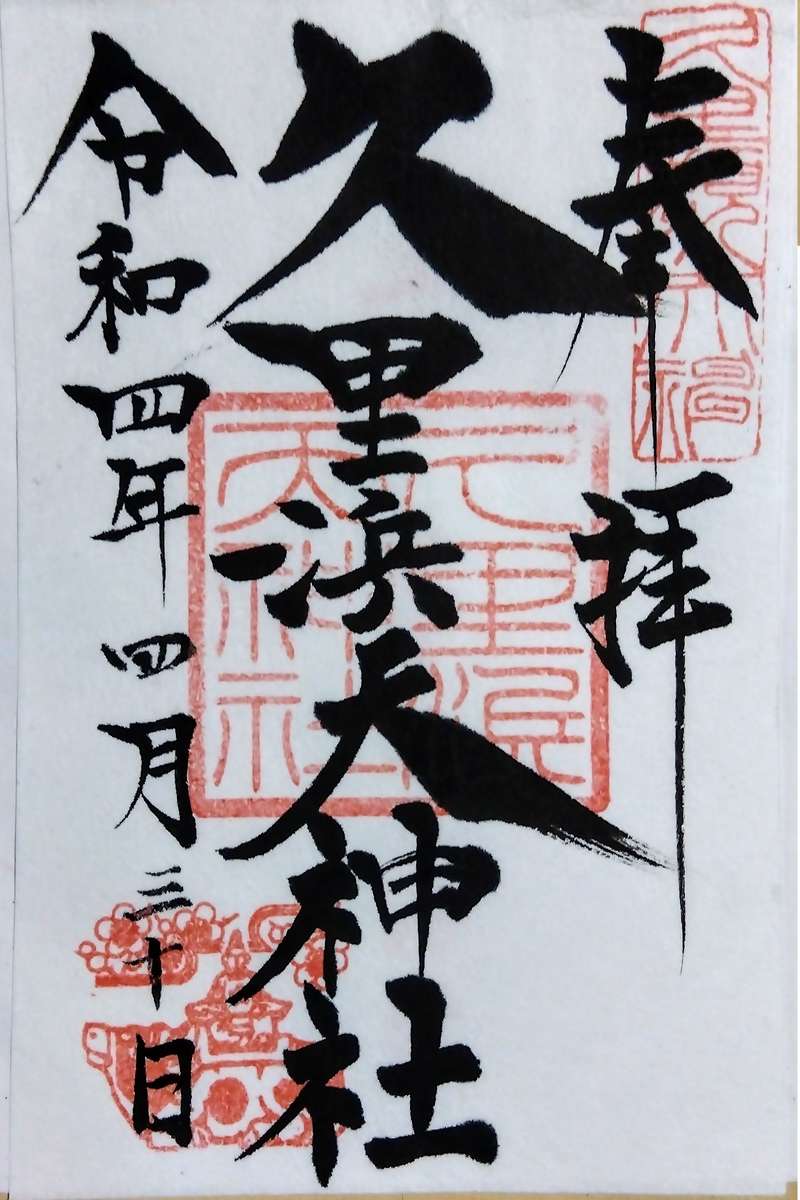 奉拝
久里浜天神社
令和四年四月三十日
久里浜
天神社